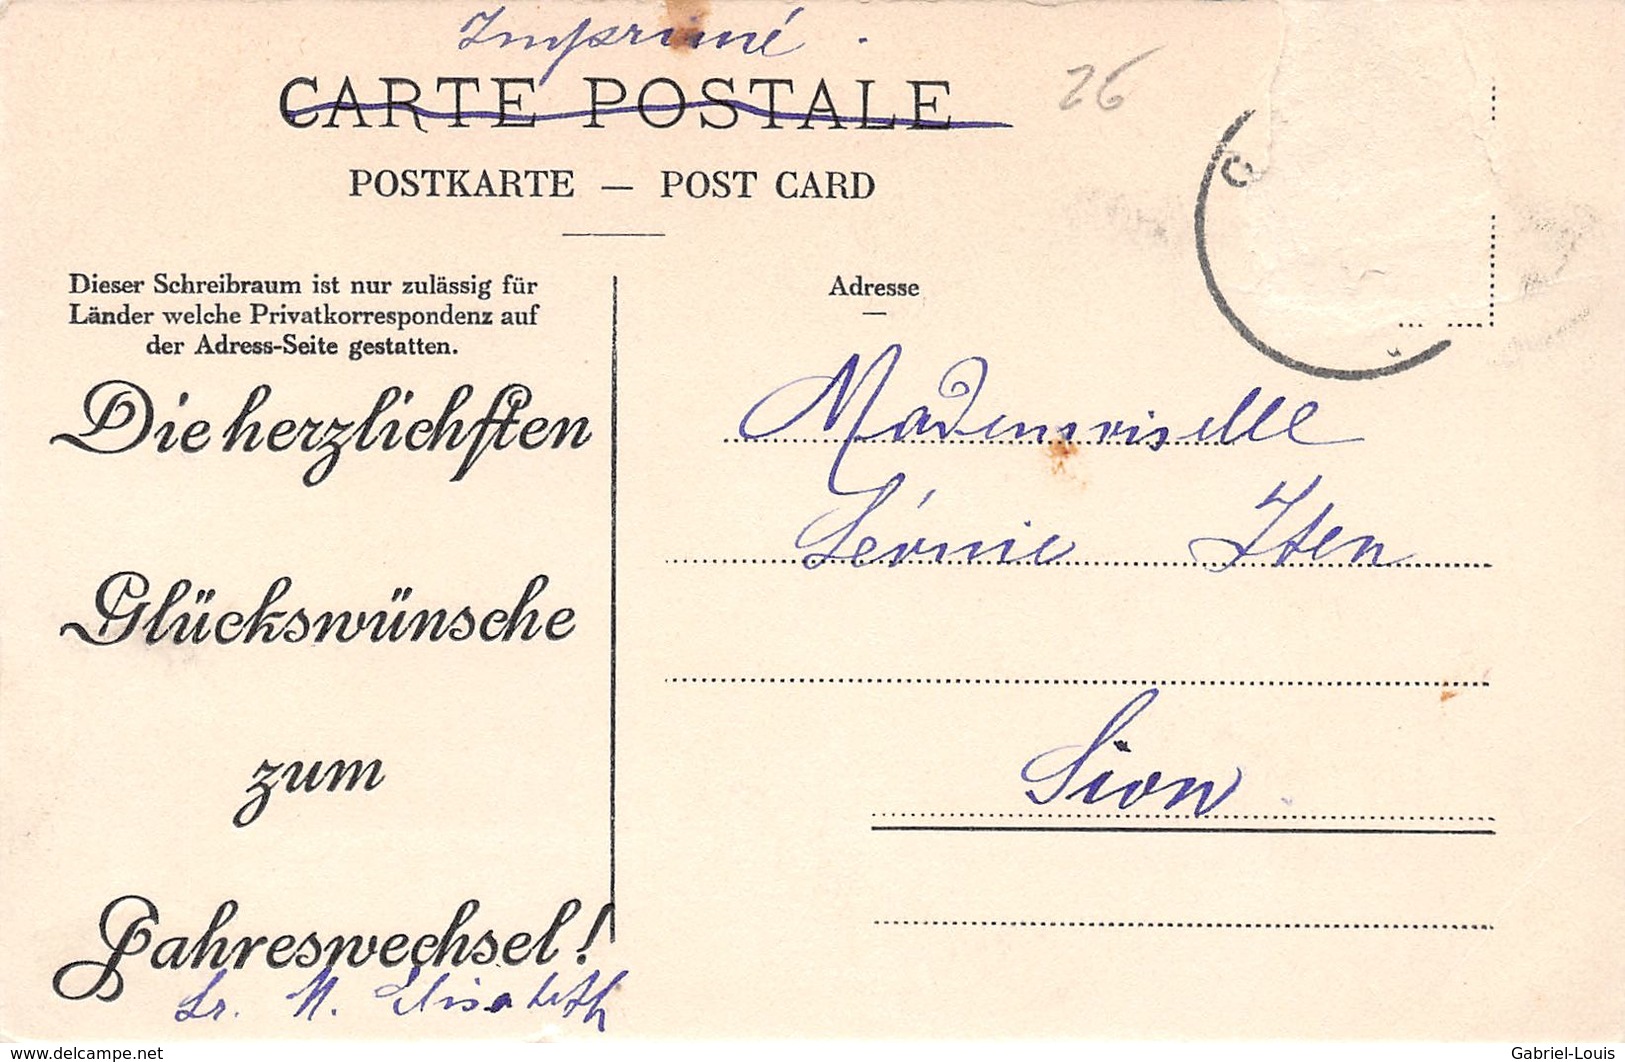 Imprimé .
CARTE POSTALE
26
POSTKARTE — POST CARD
Dieser Schreibraum ist nur zulässig für
Länder welche Privatkorrespondenz auf
der Adress-Seite gestatten.
Die herzlichsten
Glückswünsche
zum
Jahreswechsel!
Sr. M. Elisabeth
Adresse
Mademoiselle
Léonie Iten
Sion
www.delcampe.net
Gabriel-Louis